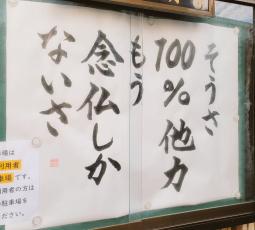 そうさ
100%他力
もう
念仏しか
ないさ
場は
利用者
車場です。
用者の方は
駐車場を
ださい。